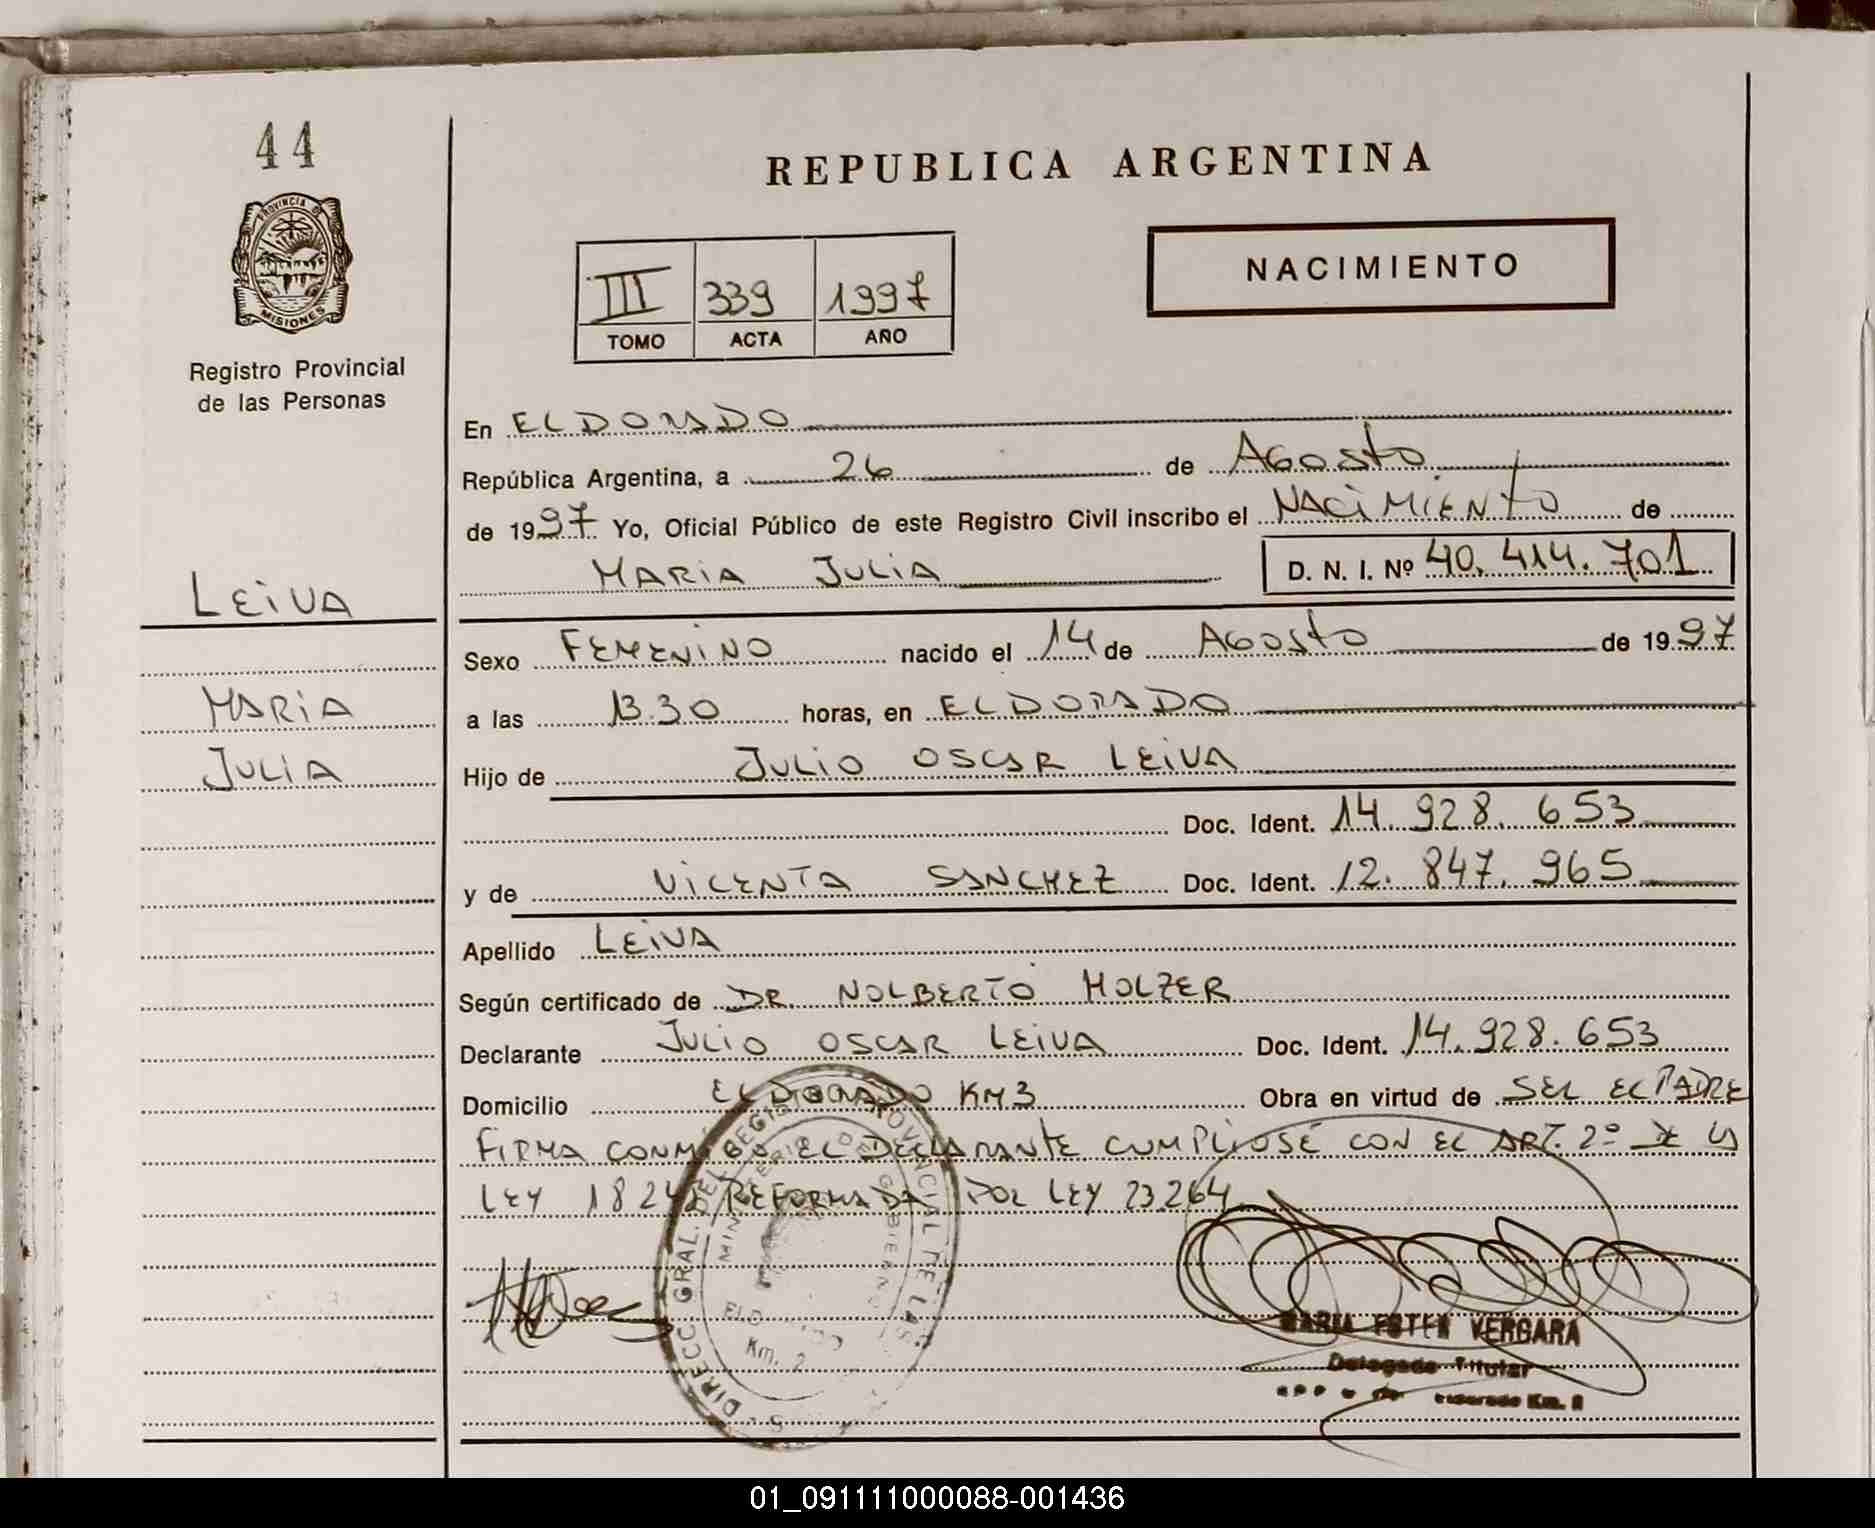 44
PROVINCIA DE
MISIONES
Registro Provincial
de las Personas
REPUBLICA ARGENTINA
NACIMIENTO
III 339 1997
TOMO ACTA AÑO
En ELDORADO
República Argentina, a 26 de Agosto
de 1997 Yo, Oficial Público de este Registro Civil inscribo el NACIMIENTO de
MARIA JULIA D. N. I. Nº 40.414.701
LEIVA
Sexo FEMENINO nacido el 14 de Agosto de 1997
MARIA
a las 13.30 horas, en ELDORADO
JULIA
Hijo de JULIO OSCAR LEIVA
Doc. Ident. 14.928.653
y de VICENTA SANCHEZ Doc. Ident. 12.847.965
Apellido LEIVA
Según certificado de DR. NOLBERTO HOLZER
Declarante JULIO OSCAR LEIVA Doc. Ident. 14.928.653
Domicilio ELDORADO KM3 Obra en virtud de SER EL PADRE
FIRMA CONMIGO EL DECLARANTE CUMPLIOSE CON EL ART. 2º DE LA
LEY 18248 REFORMADA POR LEY 23264
DIRECC. GRAL. DEL REGISTRO PROVINCIAL DE LAS
MINISTERIO DE GOBIERNO
Km. 2
MARIA ESTER VERGARA
Delegada Titular
Eldorado Km. 2
01_091111000088-001436